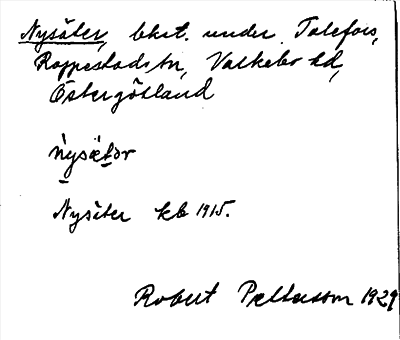 Nysäter, bbet. under Talefors,
Rappestads sn, Valkebo hd,
Östergötland
Nysäter kb 1915.
Robert Pettersson 1929